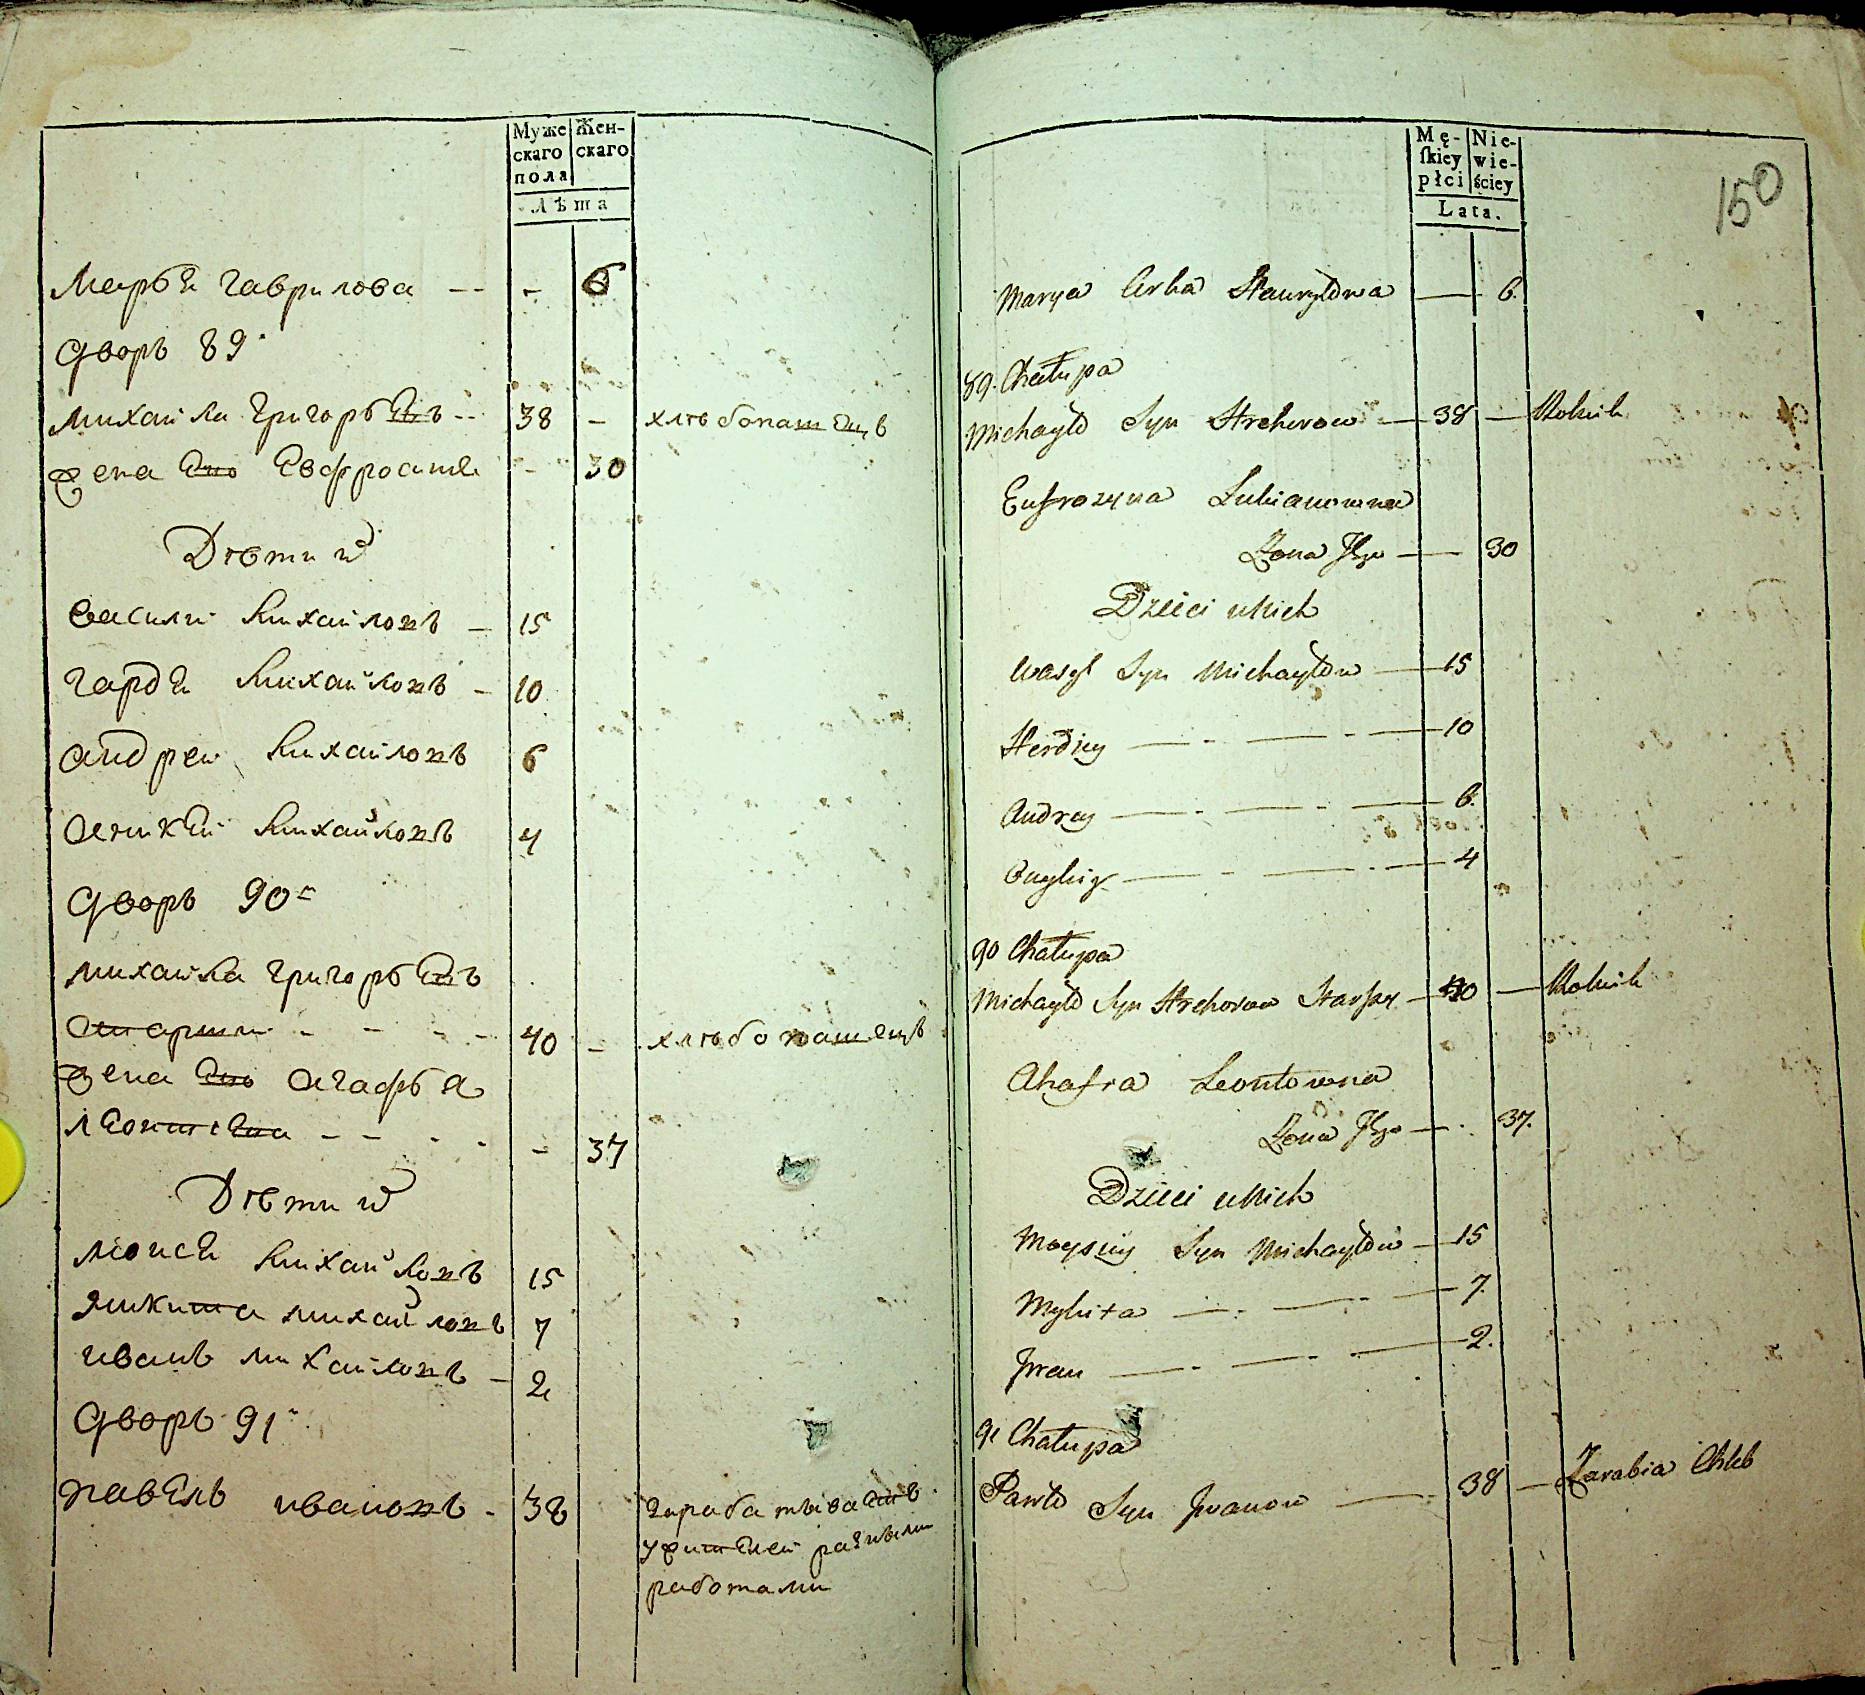 Муже
скаго
пола
Жен-
скаго
Лѣта
Марья Гаврилова -- - 6
Дворъ 89.
михаила Григорьевъ -- 38 - хлѣбопашецъ
жена Его Евфросинея - 30
Дѣти их
василий Михайловъ - 15
гардей Михайловъ - 10
андрей Михайловъ 6
аникей Михайловъ 4
Дворъ 90й
михаила григорьевъ
старший - - - - 40 - хлѣбопашецъ
жена Его агафья
леонтиева - - - - - 37
Дѣти их
моисей Михайловъ 15
микита михайловъ 7
иванъ михайловъ - 2
Дворъ 91й
павелъ ивановъ - 38
работами
150
Mę-
skiey
płci
Nie-
wie-
ściey
Lata.
Marya Corka Hauryłowa — 6.
89. Chałupa
Michayło Syn Hrehorow — 38 — Rolnik
Eufrozyna Lukianowna
Zona Jego — 30
Dzieci u Nich
Wasyl Syn Michayłow — 15
Herdiey — - — - — 10
Andrey — - — - — 6.
Onykiy — - — - — 4
90 Chałupa
Michayło Syn Hrehorow Starszy — 40 — Rolnik
Ahafia Leontowna
Zona Jego — . 37.
Dzieci u Nich
Moysiey Syn Michayłow — 15
Mykita — - — - — 7.
Iwan — - — - — 2.
91 Chałupa
Pawło Syn Iwanow — 38 — Zarabia Chleb